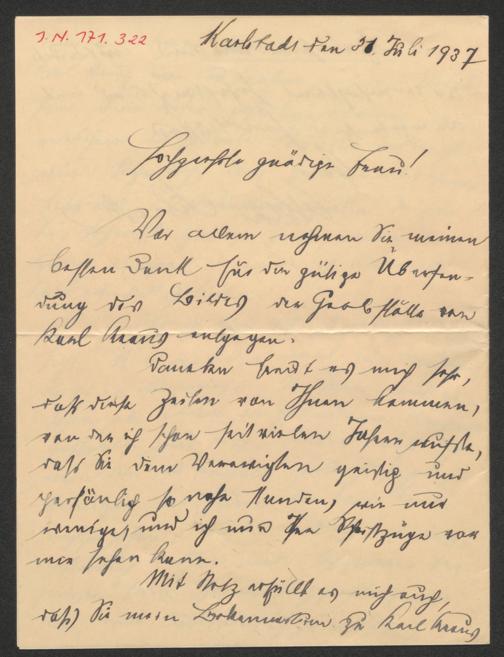 I.N. 171.322
Karlstadt den 31. Juli 1937
Hochverehrte gnädige Frau!
Vor allem nehmen Sie meinen
besten Dank für die gütige Übersen-
dung des Bildes der Grabstätte von
Karl Kraus entgegen.
Daneben freut es mich sehr,
daß diese Zeilen von Ihnen kommen,
von der ich schon seit vielen Jahren wußte,
daß Sie dem Verewigten geistig und
persönlich so nahe standen, wie nur
wenige, und ich nun Ihre Schriftzüge vor
mir sehen kann.
Mit Stolz erfüllt es mich auch,
daß Sie mein Bekenntnis zu Karl Kraus